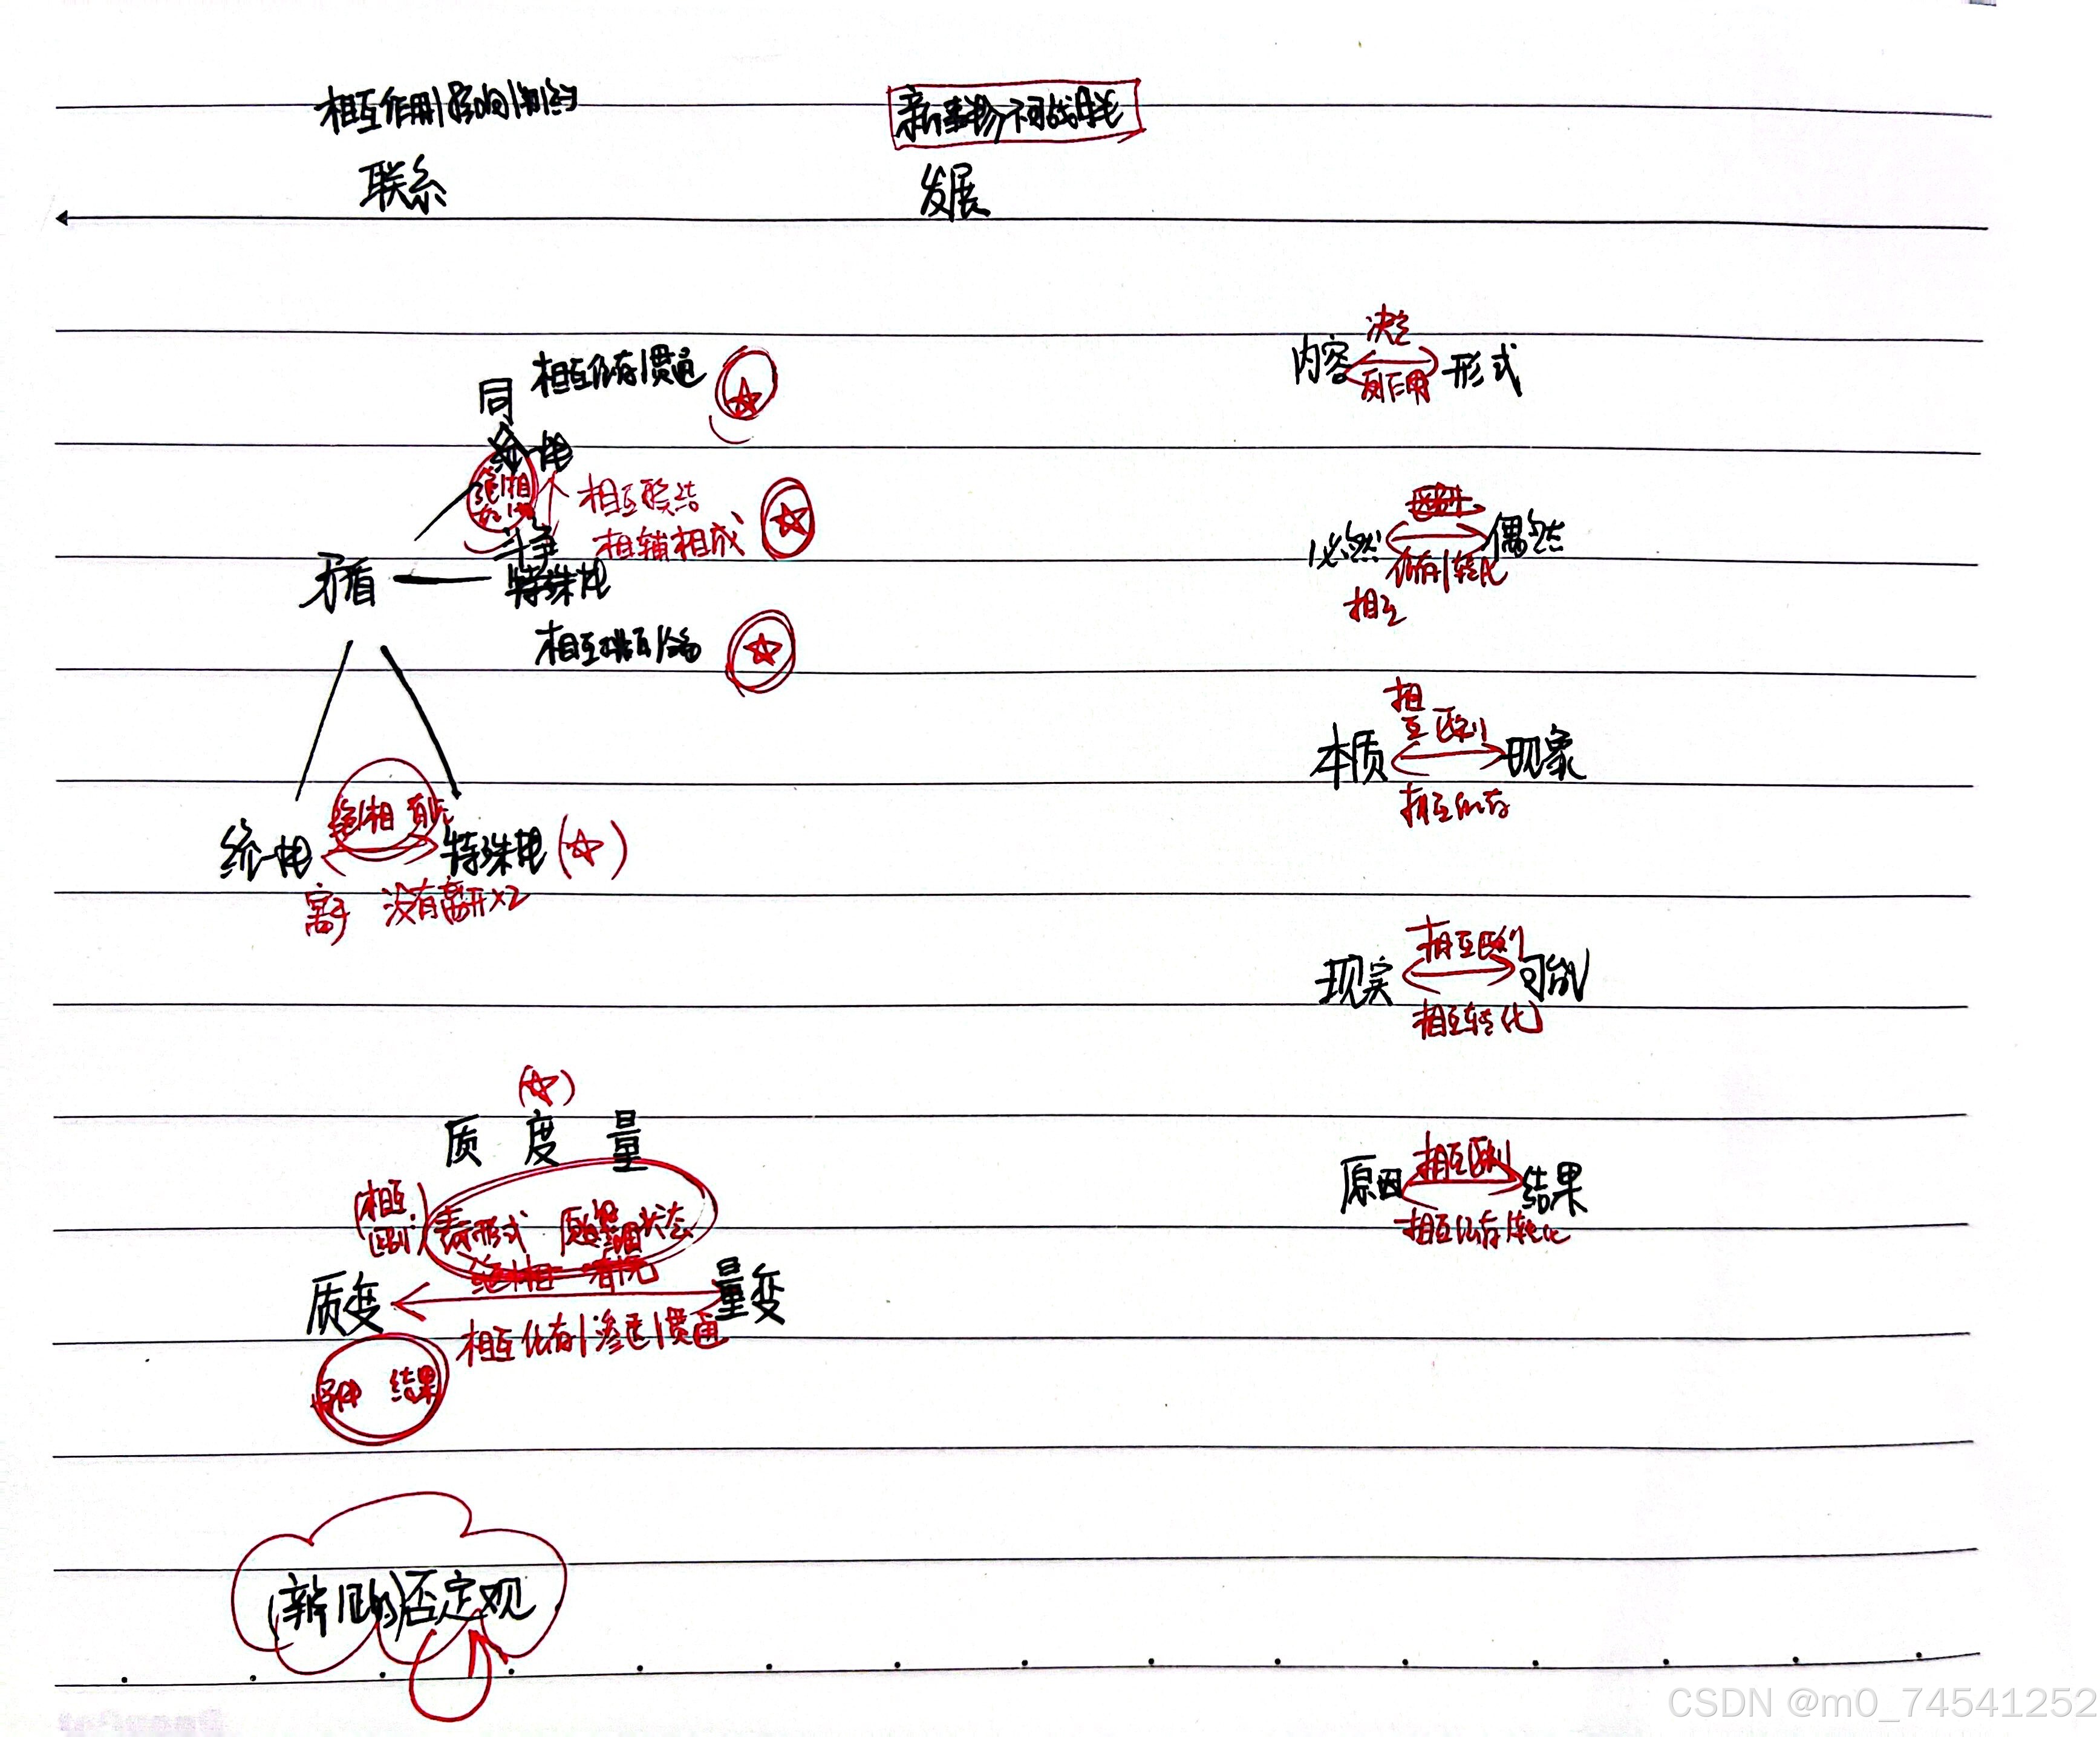 相互作用|影响|制约
新事物不可战胜
联系
发展
同一性
相互依存|贯通
相互联结
相辅相成
斗争
特殊性
矛盾
相互排斥|分离
统一性
特殊性
绝|相
没有离开×2
寓于
质 度 量
相互区别
表形式
状态
质变
量变
相互依存|渗透|贯通
结果
(辩证的)否定观
决定
内容
形式
反作用
必然
偶然
依存|转化
相互
相互区别
本质
现象
相互依存
相互区别
现实
可能
相互转化
相互区别
原因
结果
相互依存|转化
CSDN @m0_74541252